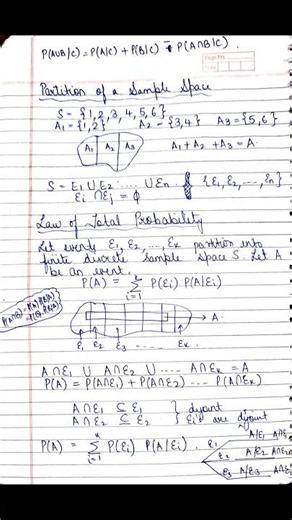 P(A∪B/C) = P(A/C) + P(B/C) - P(A∩B/C)
Partition of a Sample Space
S = {1,2,3,4,5,6}
A₁ = {1,2} A₂ = {3,4} A₃ = {5,6}
A₁ A₂ A₃ A₁ + A₂ + A₃ = A.
S = E₁ ∪ E₂ ..... ∪ Eₙ {E₁, E₂, ...., Eₙ}
Eᵢ ∩ Eⱼ = ϕ
Law of Total Probability
Let events E₁, E₂, ..., Eₖ partition into
finite discrete sample space S. Let A
be an event.
P(A) = Σ P(Eᵢ) P(A|Eᵢ)
k
i=1
E₁ E₂ E₃ .... Eₖ.
A∩E₁ ∪ A∩E₂ ∪ ..... A∩Eₖ = A
P(A) = P(A∩E₁) + P(A∩E₂) .... P(A∩Eₖ)
A∩E₁ ⊆ E₁
A∩E₂ ⊆ E₂ } disjoint
Eᵢ's are disjoint
P(A) = Σ P(Eᵢ) P(A/Eᵢ).
k
i=1
E₁ A/E₁
E₂ A/E₂ A∩E₂
E₃ A/E₃ A∩E₃